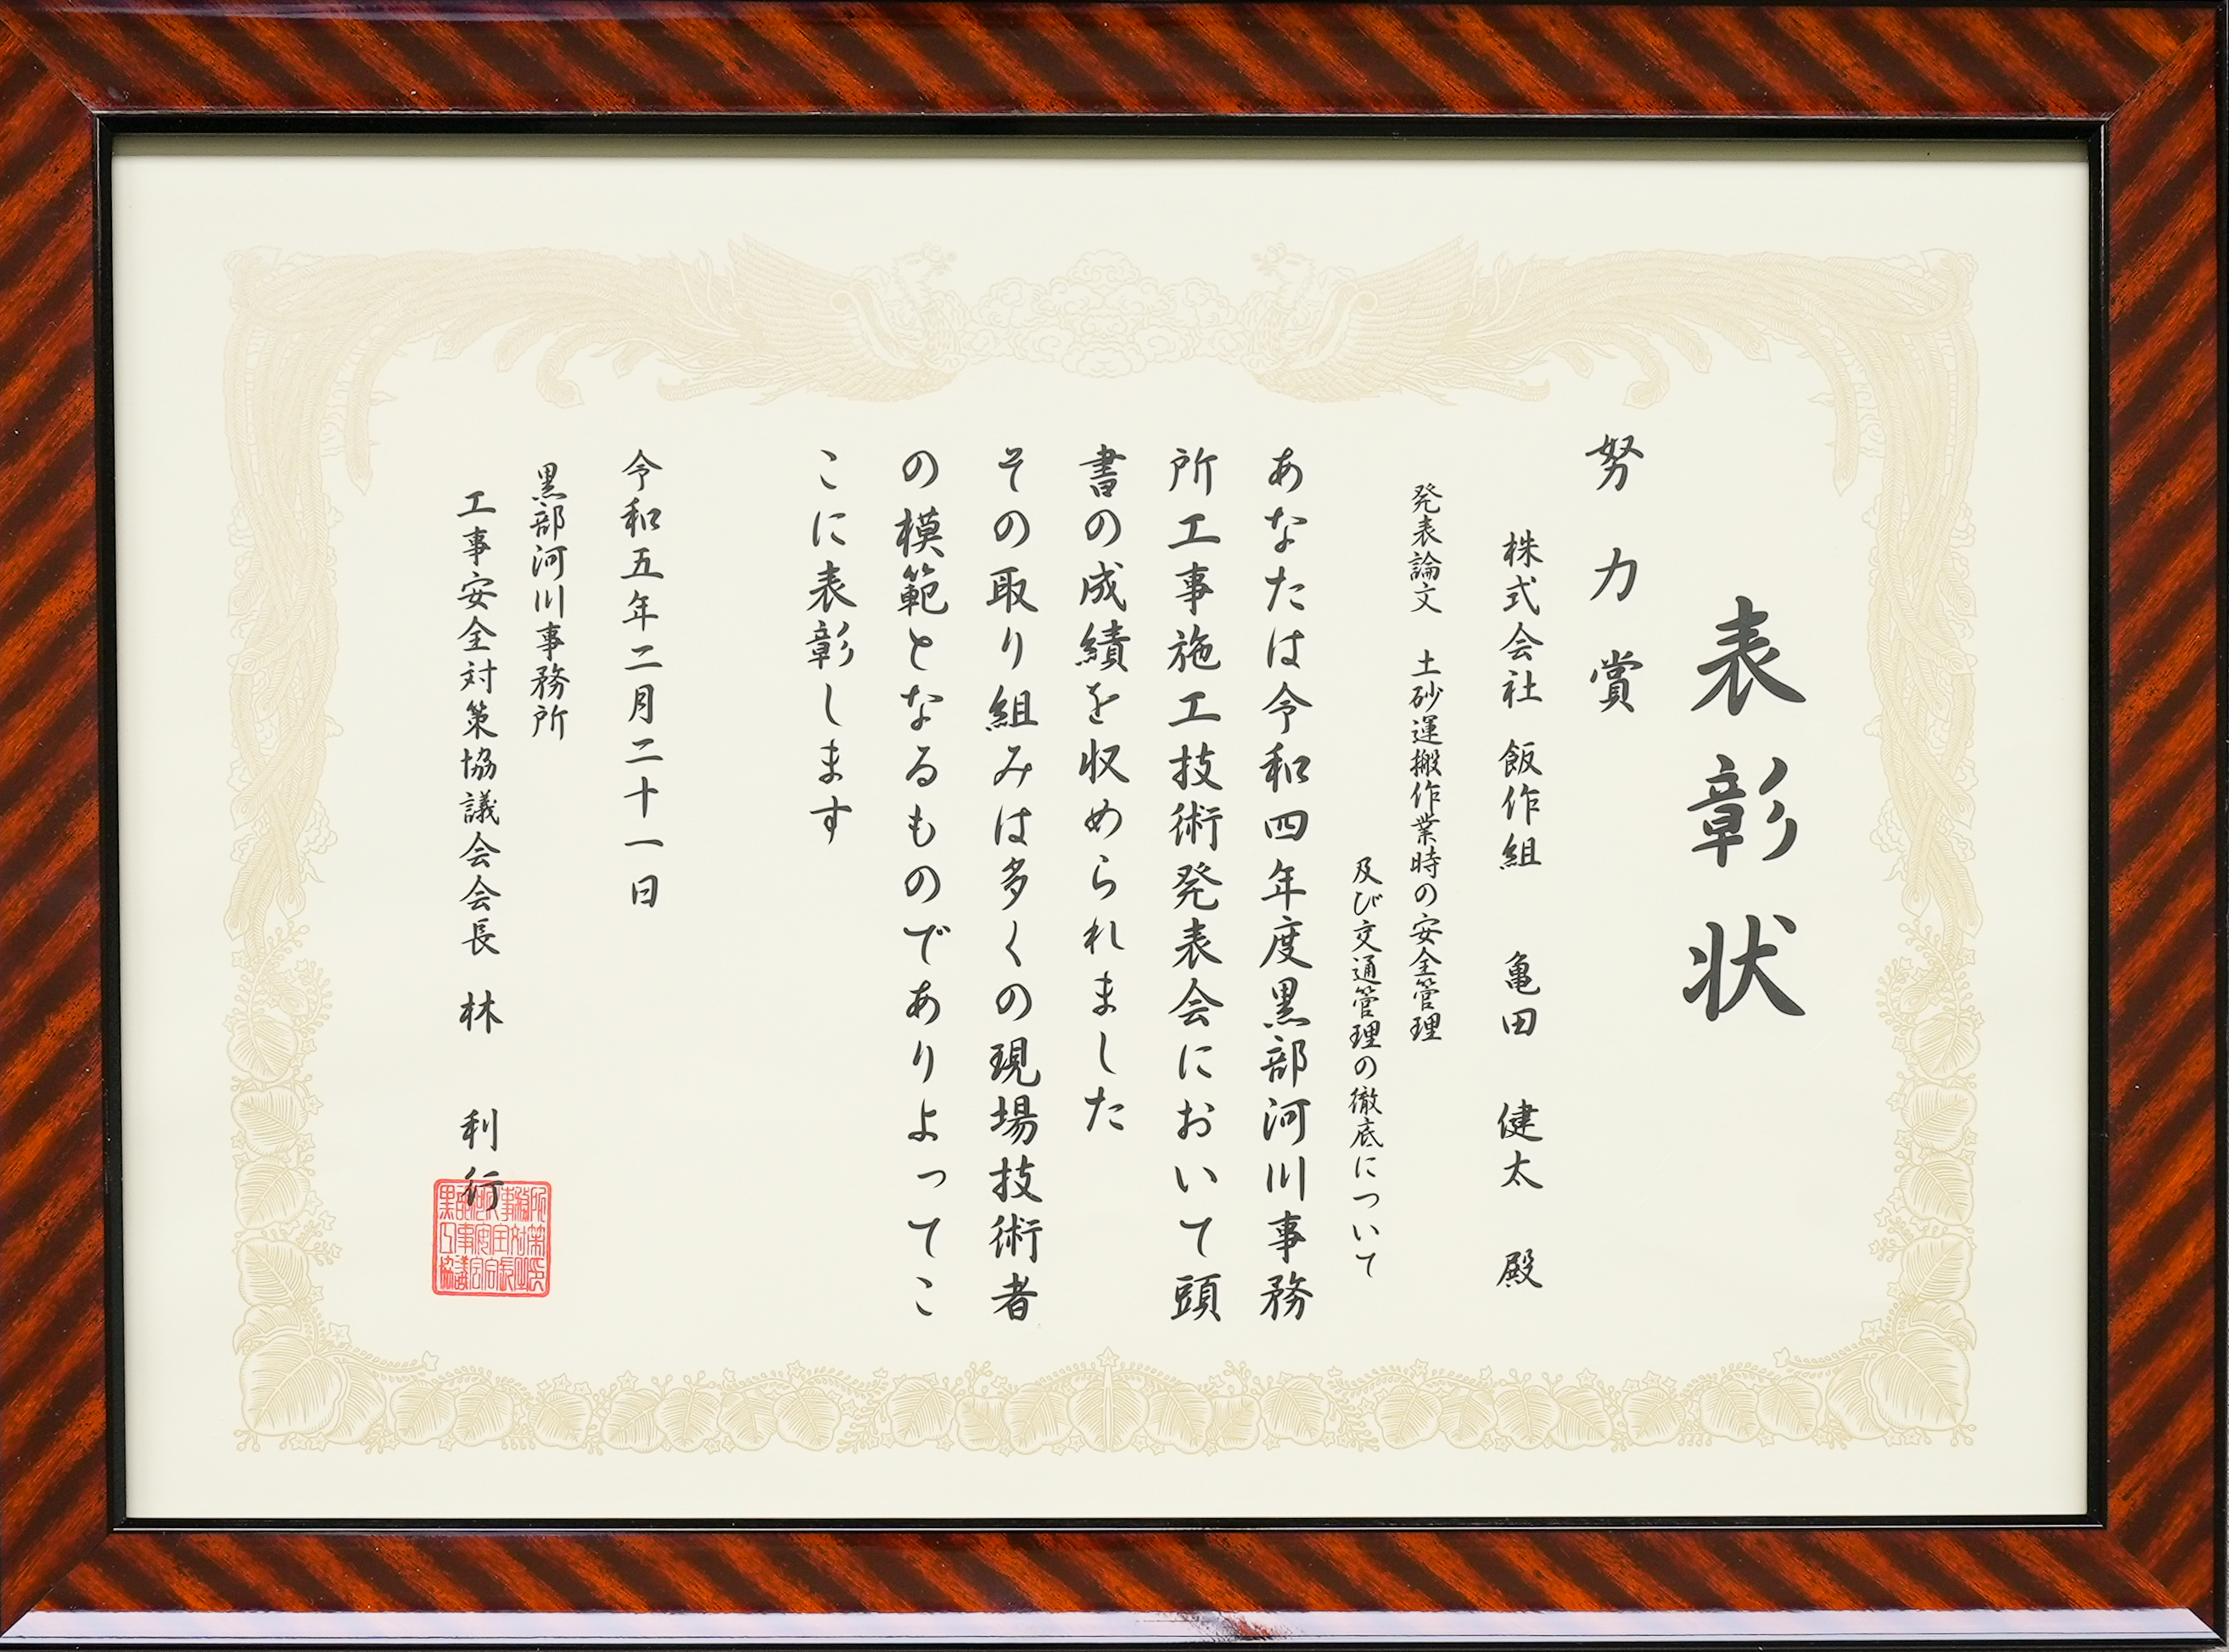 表彰状
努力賞
株式会社 飯作組 亀田 健太 殿
発表論文 土砂運搬作業時の安全管理
及び交通管理の徹底について
あなたは令和四年度黒部河川事務
所工事施工技術発表会において頭
書の成績を収められました
その取り組みは多くの現場技術者
の模範となるものでありよってこ
こに表彰します
令和五年二月二十一日
黒部河川事務所
工事安全対策協議会会長 林 利行